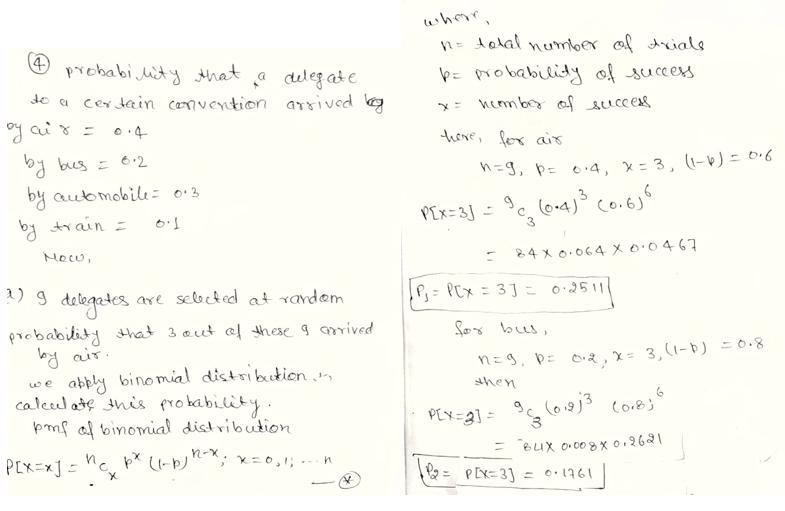 ④ probability that a delegate
to a certain convention arrived
by air = 0.4
by bus = 0.2
by automobile = 0.3
by train = 0.1
Now,
a) 9 delegates are selected at random
probability that 3 out of these 9 arrived
by air.
we apply binomial distribution
calculate this probability.
pmf of binomial distribution
P[X=x] = ⁿCₓ pˣ (1-p)ⁿ⁻ˣ; x=0,1, ... n
— ⊛
where,
n = total number of trials
p = probability of success
x = number of success
here, for air
n=9, p= 0.4, x=3, (1-p)=0.6
P[X=3] = ⁹C₃ (0.4)³ (0.6)⁶
= 84 × 0.064 × 0.0467
P₁ = P[X = 3] = 0.2511
for bus,
n=9, p= 0.2, x= 3, (1-p) = 0.8
then
P[X=3] = ⁹C₃ (0.2)³ (0.8)⁶
= 84 × 0.008 × 0.2621
P₂ = P[X=3] = 0.1761